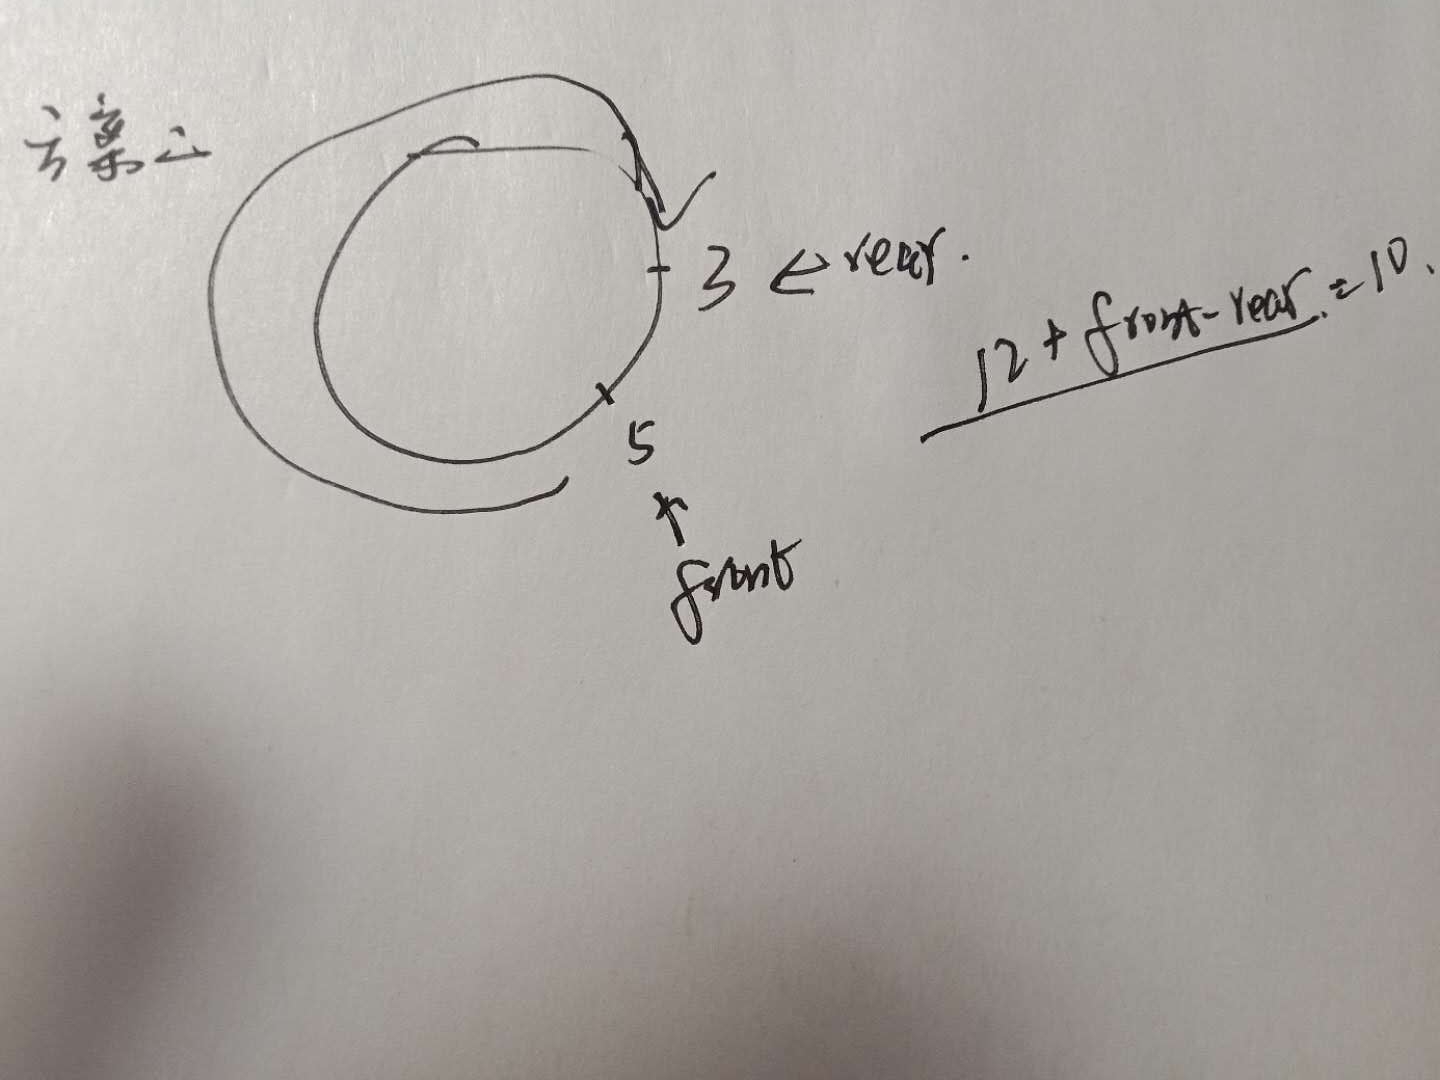 方案二
3 ← rear.
12 + front - rear. = 10.
5
↑
front